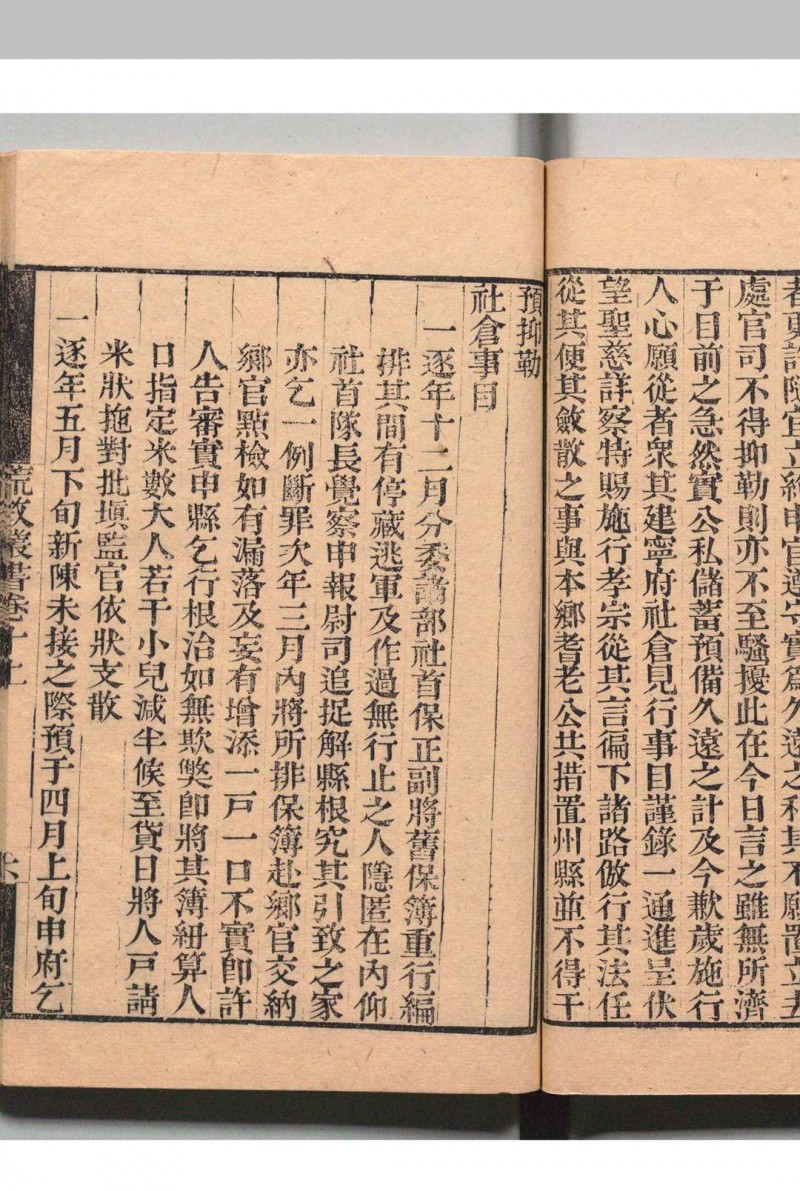 者更許隨宜立約申官遵守實爲久遠之利其不願置立去
處官司不得抑勒則亦不至騷擾此在今日言之雖無所濟
于目前之急然實公私儲蓄預備久遠之計及今歉歲施行
人心願從者衆其建寧府社倉見行事目謹錄一通進呈伏
望聖慈詳察特賜施行孝宗從其言徧下諸路倣行其法任
從其便其斂散之事與本鄉耆老公共措置州縣並不得干
預抑勒
社倉事目
一逐年十二月分委諸部社首保正副將舊保簿重行編
排其間有停藏逃軍及作過無行止之人隱匿在內仰
社首隊長覺察申報尉司追捉解縣根究其引致之家
亦乞一例斷罪次年三月內將所排保簿赴鄉官交納
鄉官點檢如有漏落及妄有增添一戸一口不實卽許
人告審實申縣乞行根治如無欺獘卽將其簿紐算人
口指定米數大人若干小兒減半候至貸日將人戸請
米狀拖對批塡監官依狀支散
一逐年五月下旬新陳未接之際預于四月上旬申府乞
荒政叢書卷十上